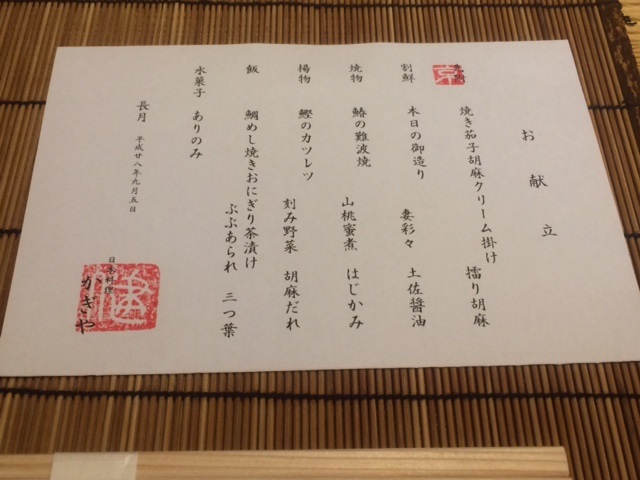 お献立
焼き茄子胡麻クリーム掛け　擂り胡麻
割鮮　本日の御造り　妻彩々　土佐醤油
焼物　鰆の難波焼　山桃蜜煮　はじかみ
揚物　鰹のカツレツ　刻み野菜　胡麻だれ
飯　鯛めし焼きおにぎり茶漬け
ぶぶあられ　三つ葉
水菓子　ありのみ
長月　平成廿八年九月五日
日本料理
かぎや